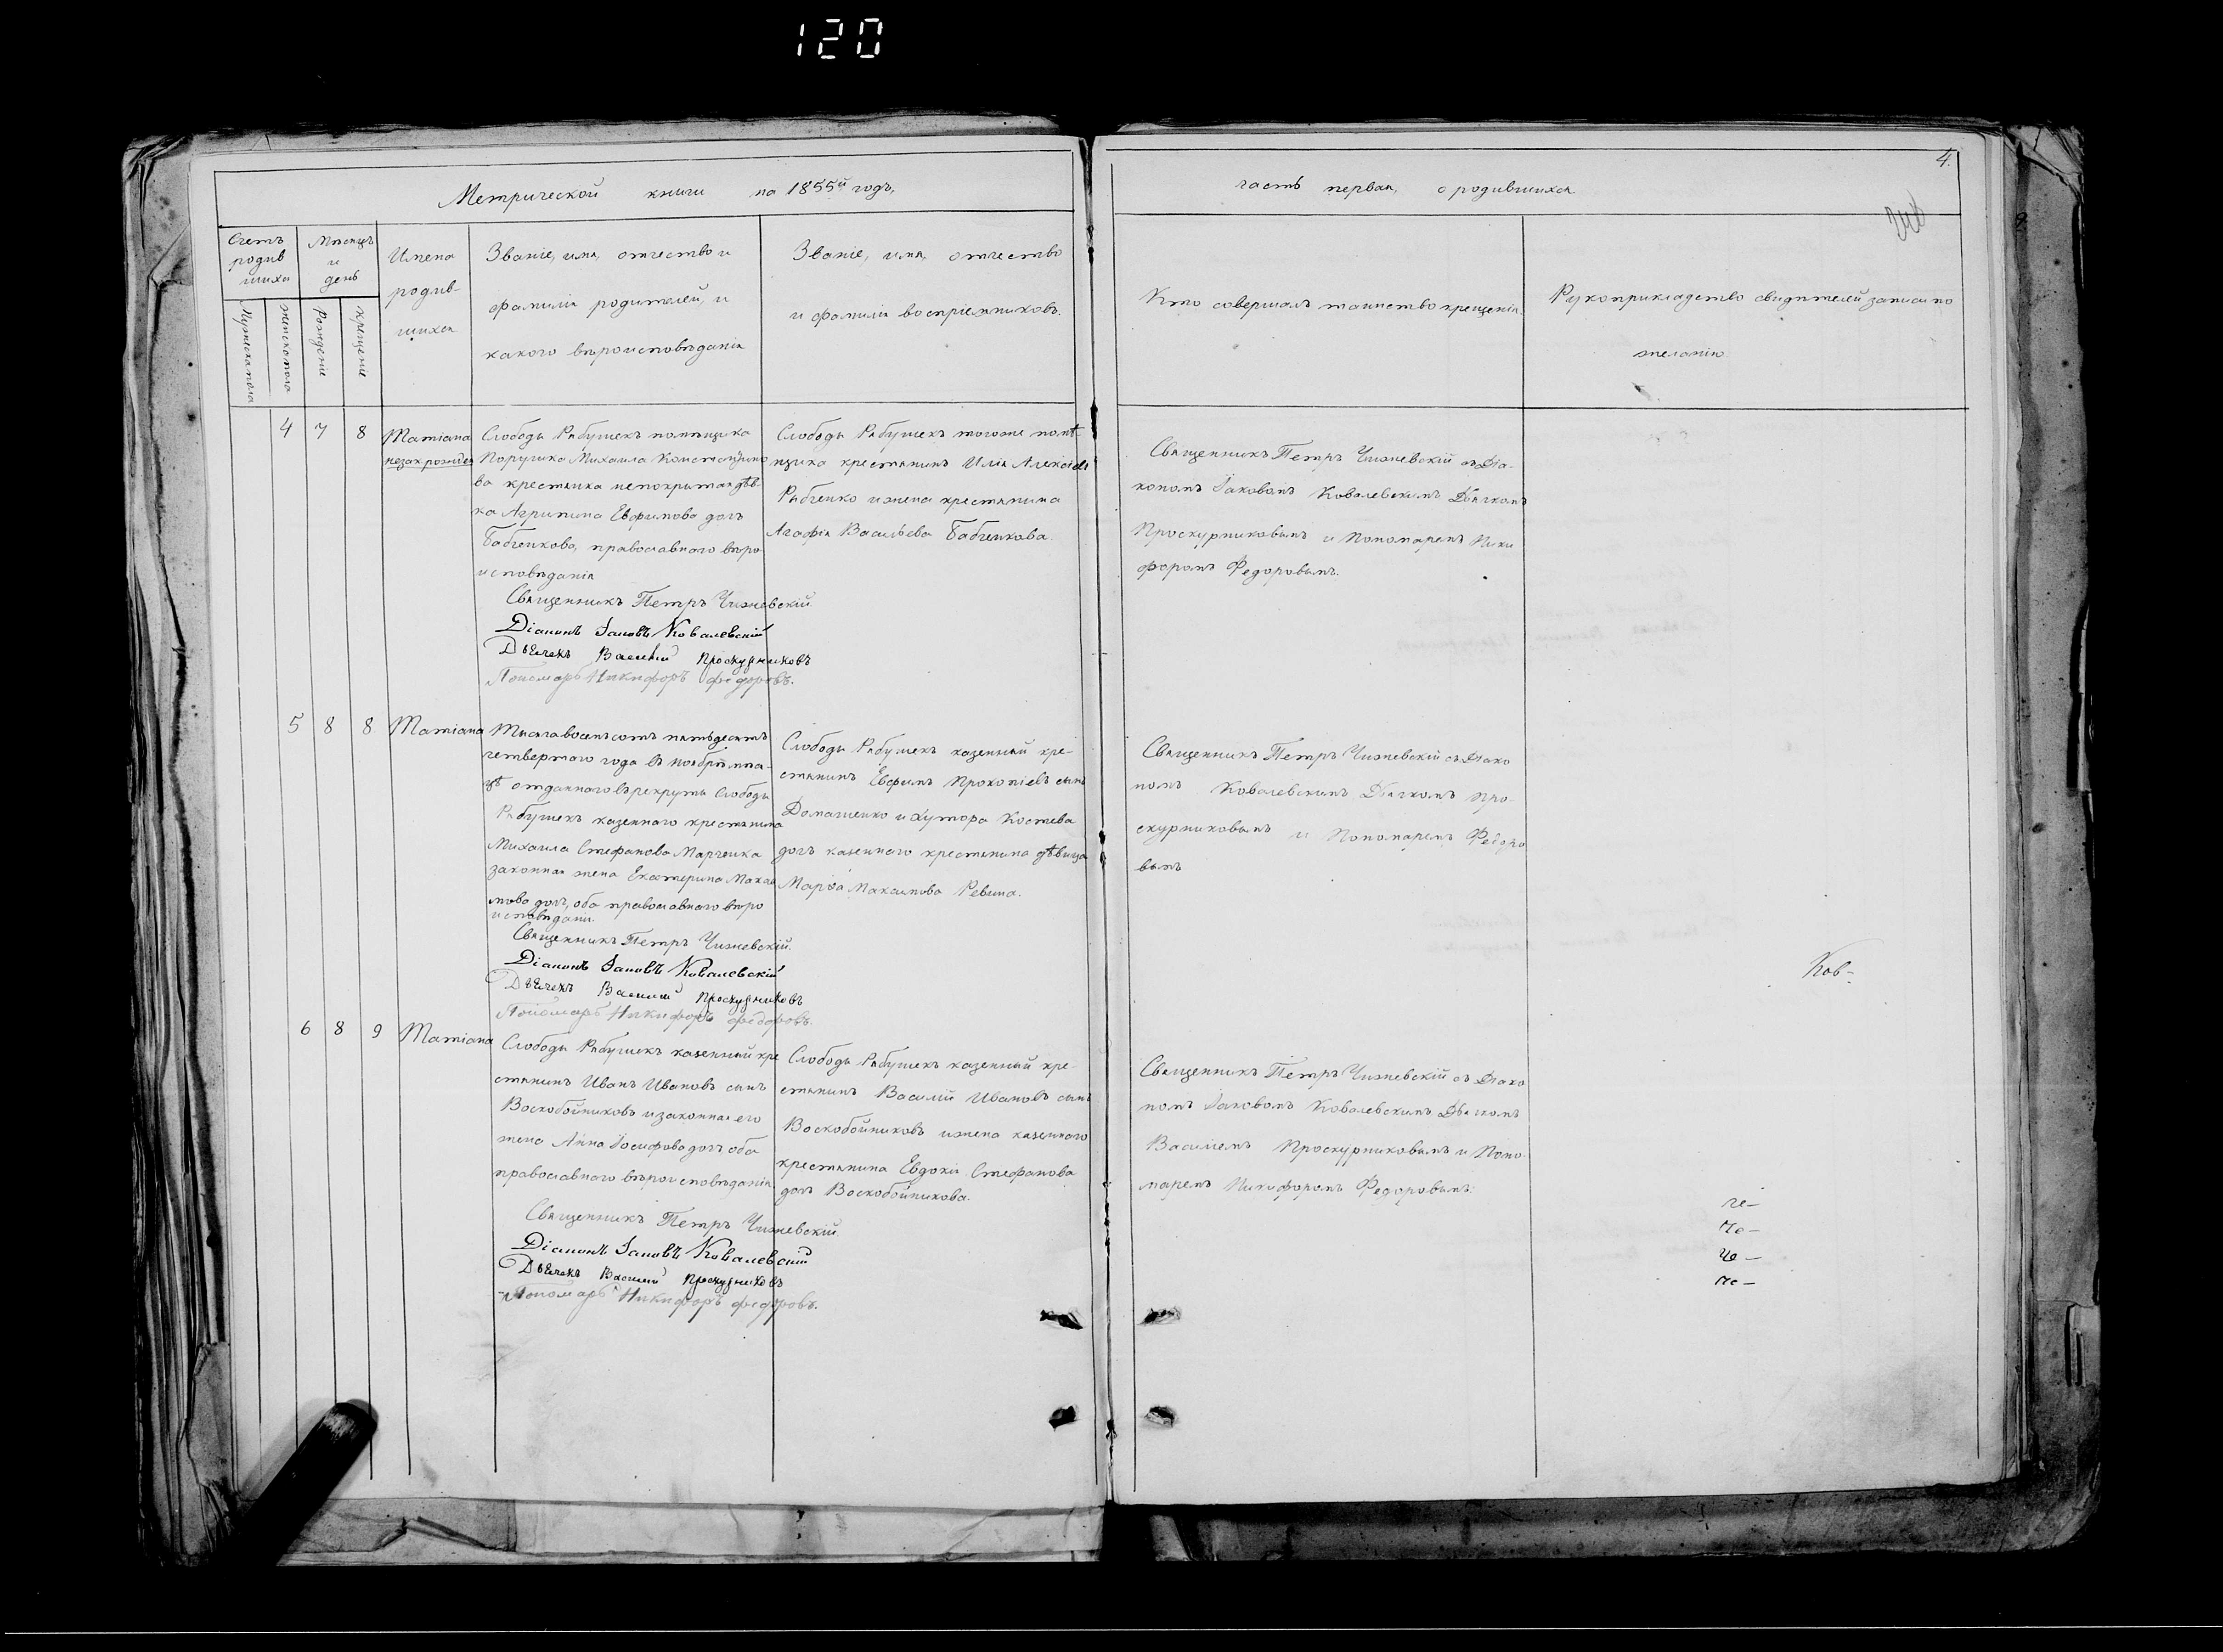 120
4.
Метрической книги на 1855й годъ,
часть первая, о родившихся
Счетъ
родив
шихся
Мѣсяцъ
и
день
Мужеска пола
Женска пола
Рожденіе
Крещеніе
Имена
родив-
шихся
Званіе, имя, отчество и
фамилія родителей, и
какого вѣроисповѣданія
Званіе, имя, отчество
и фамилія воспріемниковъ.
Кто совершалъ таинство крещенія.
Рукоприкладство свидѣтелей записи по
желанію
4 7 8 Татіана
незакрожден
Слободы Рябушекъ помѣщика
Поручика Михаила Константино
ва крестьянка непокрытая дѣв-
ка Агрипина Евфимова дочь
Бабченкова, православнаго вѣро
исповѣданія
Священникъ Петръ Чижевскій.
Діаконъ Іаковъ Ковалевскій
Дьячекъ Василий Проскурниковъ
Пономарь Никифоръ Федоровъ.
Слободы Рябушекъ тогоже помѣ
щика крестьянинъ Илія Алексіевъ
Рябченко и жена крестьянина
Агафія Васильева Бабченкова.
Священникъ Петръ Чижевскій съ Діа-
кономъ Іаковомъ Ковалевскимъ Дьячкомъ
Проскурниковымъ и Пономаремъ Ники
форомъ Федоровымъ.
5 8 8 Татіана
Тысяча восемьсотъ пятьдесятъ
четвертаго года въ ноябрѣ мѣся-
цѣ отданнаго въ рекруты Слободы
Рябушекъ казеннаго крестьянина
Михаила Стефанова Марченка
законная жена Екатерина Макси
мова дочь, оба православнаго вѣро
исповѣдани.
Священникъ Петръ Чижевскій.
Діаконъ Іаковъ Ковалевскій
Дьячекъ Василий Проскурниковъ
Пономарь Никифоръ Федоровъ.
Слободы Рябушекъ казенный кре-
стьянинъ Евфимъ Прокопіевъ сынъ
Домашенко и Хутора Костева
дочь казеннаго крестьянина дѣвица
Марѳа Максимова Ревина.
Священникъ Петръ Чижевскій съ Діако
номъ Ковалевскимъ Дьячкомъ Про-
скурниковымъ и Пономаремъ Федоро
вымъ
Ков-
6 8 9 Татіана
Слободы Рябушекъ казенный кре
стьянинъ Иванъ Ивановъ сынъ
Воскобойниковъ и законная его
жена Анна Іосифова дочь, оба
православнаго вѣроисповѣданія.
Священникъ Петръ Чижевскій
Діаконъ Іаковъ Ковалевскій
Дьячекъ Василий Проскурниковъ
Пономарь Никифоръ Федоровъ.
Слободы Рябушекъ казенный кре-
стьянинъ Василій Ивановъ сынъ
Воскобойниковъ и жена казеннаго
крестьянина Евдокія Стефанова
дочь Воскобойникова.
Священникъ Петръ Чижевскій съ Діако
номъ Іаковомъ Ковалевскимъ Дьячкомъ
Василіемъ Проскурниковымъ и Поно
маремъ Никифоромъ Федоровымъ.
че-
че-
че-
че-